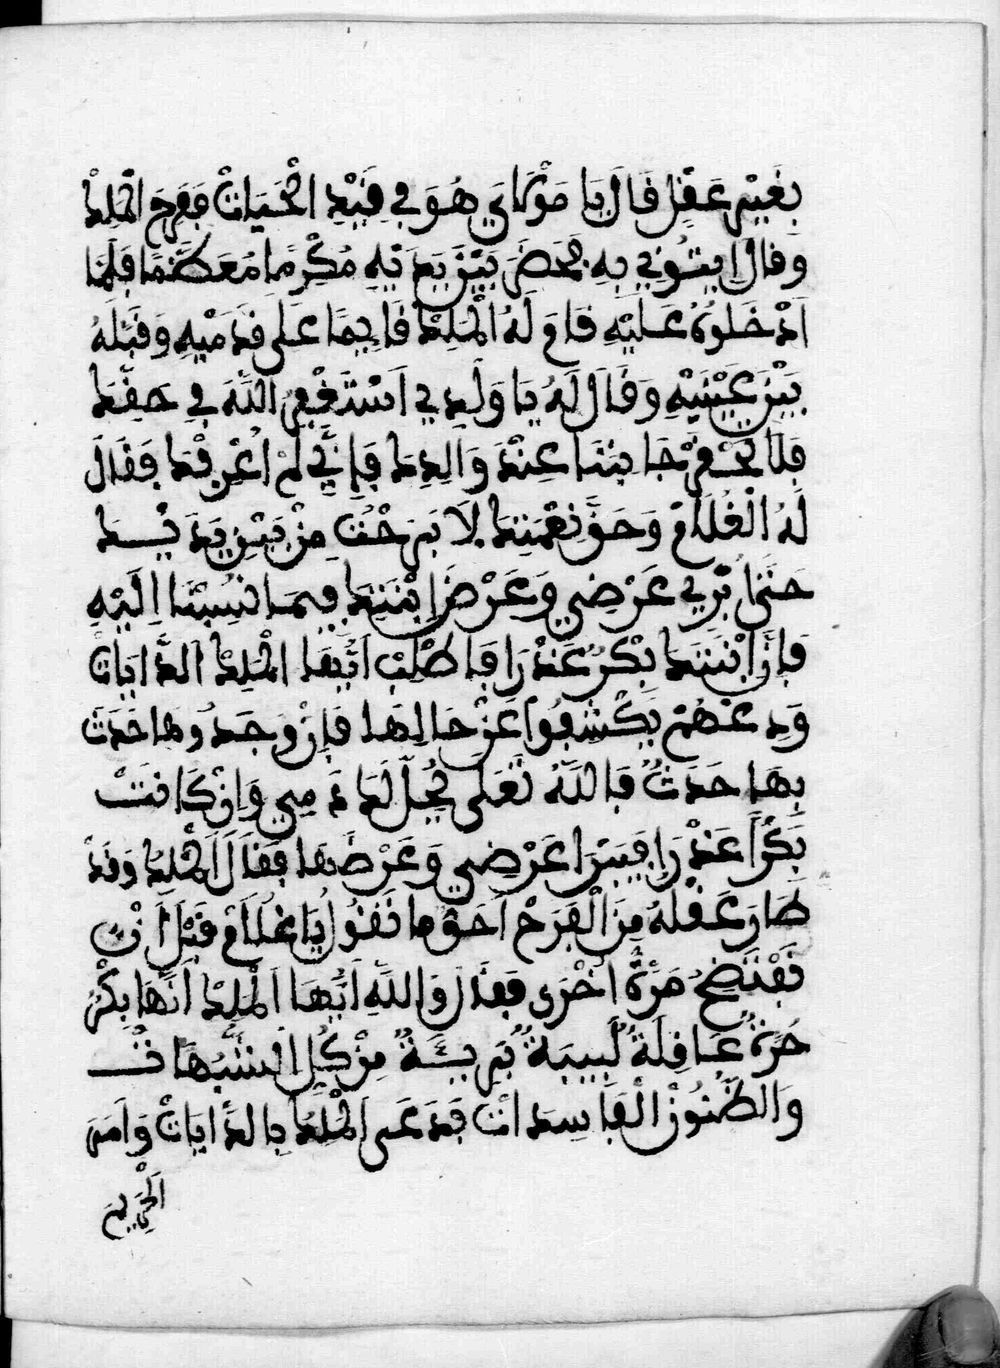 بِغَيْرِ عَقْلٍ فَالَ يَا مَوْلَايَ هُوَ فِي قَيْدِ الْحَيَاتْ فَفَرِحَ الْمَلِكْ
وَقَالَ ايتُونِي بِهِ فحَضَرَ بَيْنَ يَدَيْهِ مُكْرَمًا مُعَظَّمًا فَلَمَّا
ادْخَلُوهُ عَلَيْهِ قَامَ لَهُ الْمَلِكْ قَايِمًا عَلَى قَدَمَيْهِ وَقَبَّلَهُ
بَيْنَ عَيْنَيْهِ وَقَالَ لَهُ يَا وَلَدِي اسْتَغْفِرِ اللَّهَ فِي حَقِّكَ
فَلَا تخرجنا بتنا عِنْدَ وَالِدِكَ فَإِنِّي لَمْ اعْرِفْكَ فَقَالَ
لَهُ الْغُلَامْ وَحَقِّ نِعْمَتِكَ لَا بَرِحْتُ مِنْ بَيْنِ يَدَيْكَ
حَتَّى تَرى عَرْضِي وَعَرْضَ ابْنَتِكَ فِيمَا نُسِبْنَا إِلَيْهِ
فَإِنَّ ابْنَتَكَ بِكْرٌ عَذْرَا فَاطْلُبْ ايُّهَا الْمَلِكْ الدَّايَاتْ
وَدِعْهُمْ يَكْشِفُوا عَنْ حَالِهَا فَإِنْ وَجَدُوهَا حَدَثَ
بِهَا حَدَثٌ فَاللَّهُ تَعَلَى يُحِلُّ لَكَ دَمِي وَإِنْ كَانَتْ
بِكْرًا عَذْرَا فَيَبْرَا عَرْضِي وَعَرْضُهَا فَقَالَ الْمَلِكْ وَقَدْ
طَارَ عَقْلُهُ مِنَ الْفَرَحْ أَحَقٌّ مَا تَقُولُ يَا غُلَامْ قَبْلَ أَنْ
تَفْتَضِحَ مَرَّةً أخْرَى فَقَالَ وَاللَّهِ ايُّهَا الْمَلِكْ انَّهَا بِكْرٌ
حُرَّةٌ عَاقِلَةٌ لَبِيبَةٌ بَرِيئَةٌ مِنْ كُلِّ الشُّبُهَاتْ
وَالظُّنُونْ الْفَاسِدَاتْ فَدَعَى الْمَلِكُ بِالدَّايَاتْ وَأَمَرَ
الْحَرِيمَ